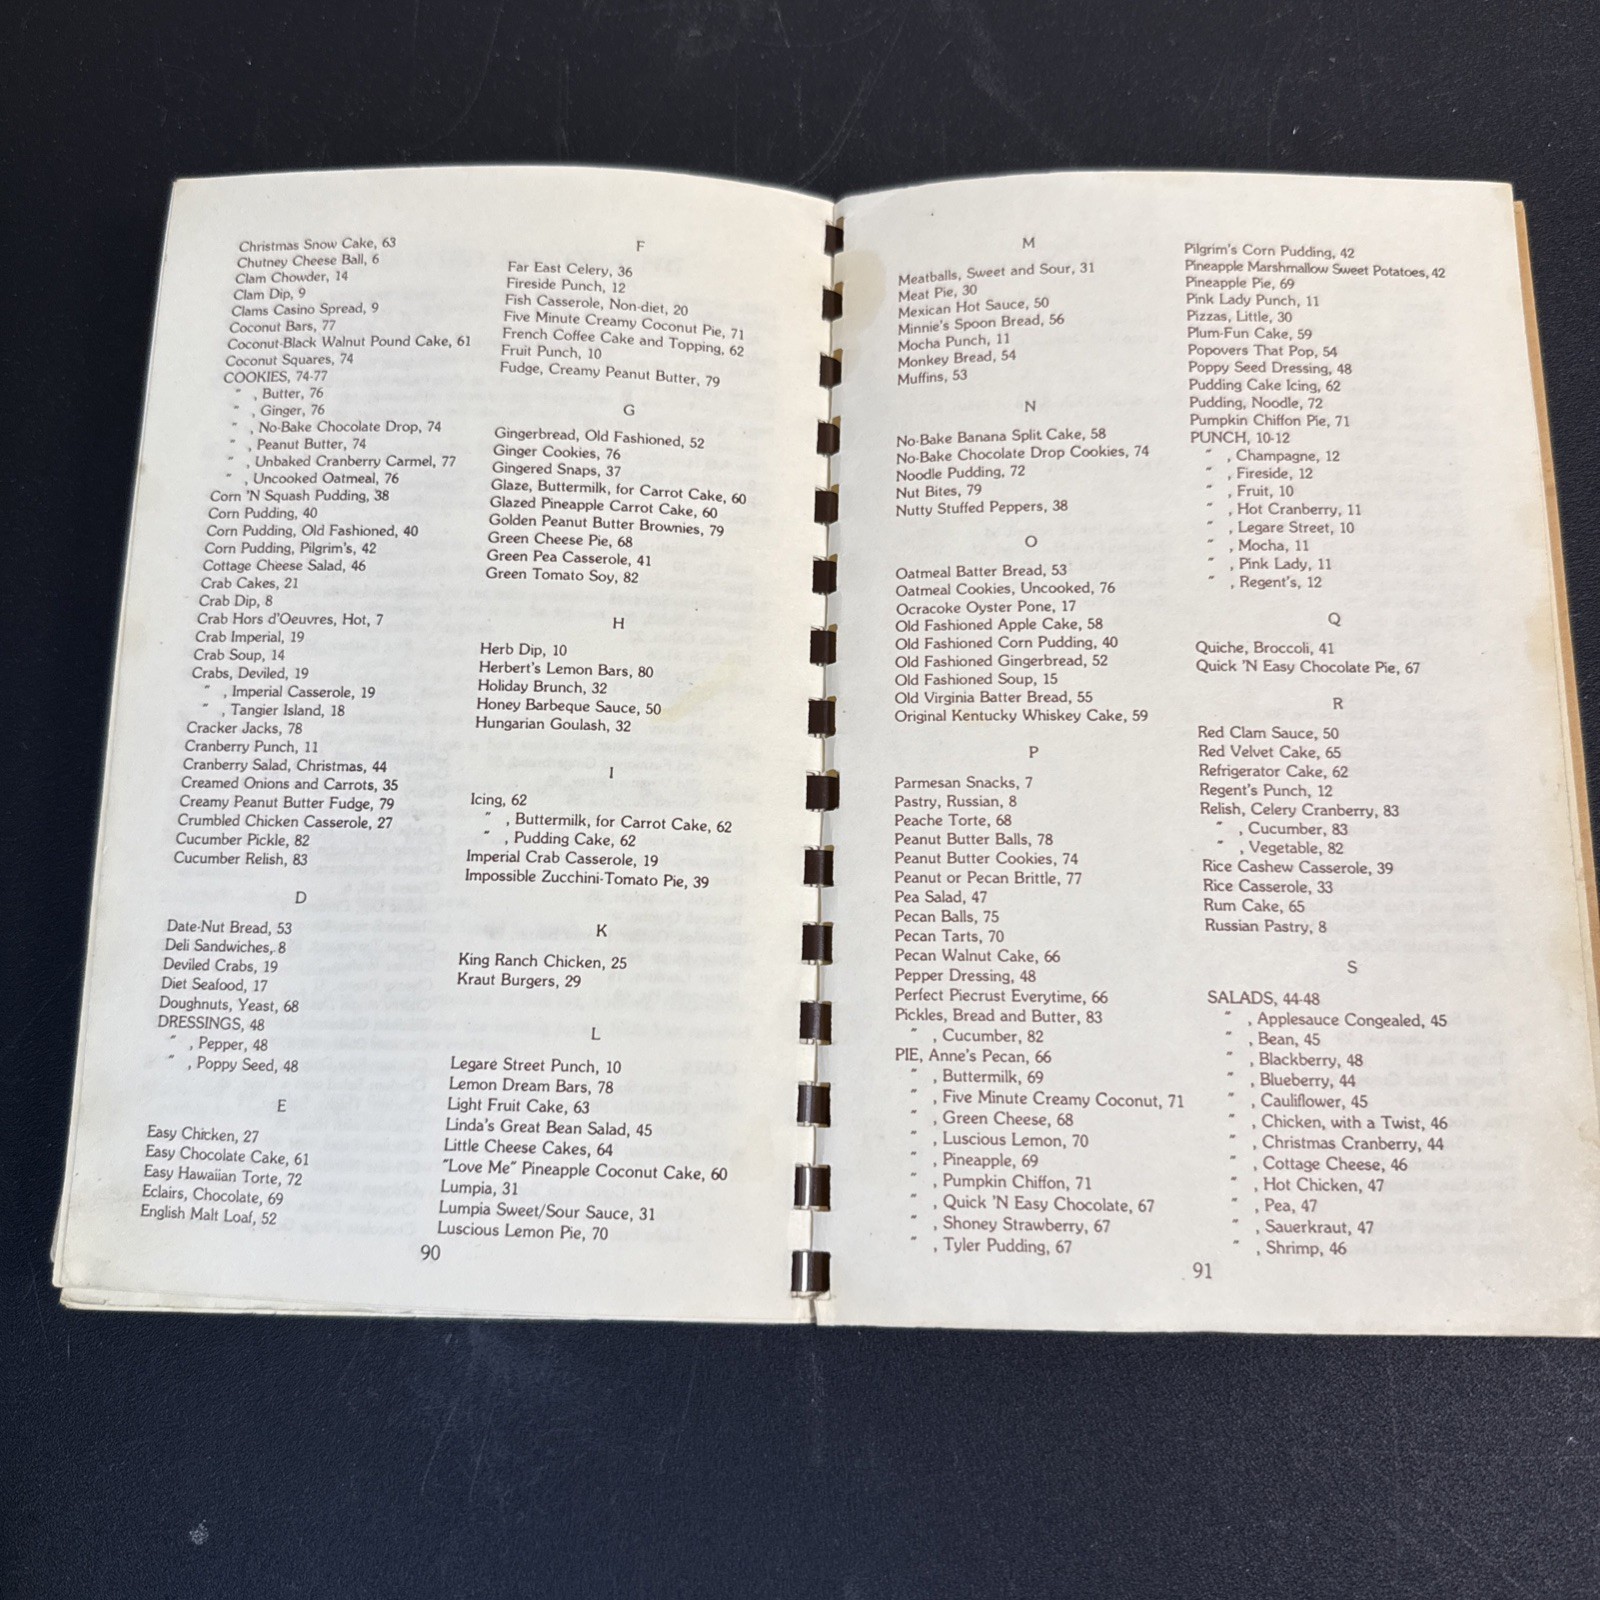 Christmas Snow Cake, 63
Chutney Cheese Ball, 6
Clam Chowder, 14
Clam Dip, 9
Clams Casino Spread, 9
Coconut Bars, 77
Coconut-Black Walnut Pound Cake, 61
Coconut Squares, 74
COOKIES, 74-77
" , Butter, 76
" , Ginger, 76
" , No-Bake Chocolate Drop, 74
" , Peanut Butter, 74
" , Unbaked Cranberry Carmel, 77
" , Uncooked Oatmeal, 76
Corn 'N Squash Pudding, 38
Corn Pudding, 40
Corn Pudding, Old Fashioned, 40
Corn Pudding, Pilgrim's, 42
Cottage Cheese Salad, 46
Crab Cakes, 21
Crab Dip, 8
Crab Hors d'Oeuvres, Hot, 7
Crab Imperial, 19
Crab Soup, 14
Crabs, Deviled, 19
" , Imperial Casserole, 19
" , Tangier Island, 18
Cracker Jacks, 78
Cranberry Punch, 11
Cranberry Salad, Christmas, 44
Creamed Onions and Carrots, 35
Creamy Peanut Butter Fudge, 79
Crumbled Chicken Casserole, 27
Cucumber Pickle, 82
Cucumber Relish, 83
D
Date-Nut Bread, 53
Deli Sandwiches, 8
Deviled Crabs, 19
Diet Seafood, 17
Doughnuts, Yeast, 68
DRESSINGS, 48
" , Pepper, 48
" , Poppy Seed, 48
E
Easy Chicken, 27
Easy Chocolate Cake, 61
Easy Hawaiian Torte, 72
Eclairs, Chocolate, 69
English Malt Loaf, 52
F
Far East Celery, 36
Fireside Punch, 12
Fish Casserole, Non-diet, 20
Five Minute Creamy Coconut Pie, 71
French Coffee Cake and Topping, 62
Fruit Punch, 10
Fudge, Creamy Peanut Butter, 79
G
Gingerbread, Old Fashioned, 52
Ginger Cookies, 76
Gingered Snaps, 37
Glaze, Buttermilk, for Carrot Cake, 60
Glazed Pineapple Carrot Cake, 60
Golden Peanut Butter Brownies, 79
Green Cheese Pie, 68
Green Pea Casserole, 41
Green Tomato Soy, 82
H
Herb Dip, 10
Herbert's Lemon Bars, 80
Holiday Brunch, 32
Honey Barbeque Sauce, 50
Hungarian Goulash, 32
I
Icing, 62
" , Buttermilk, for Carrot Cake, 62
" , Pudding Cake, 62
Imperial Crab Casserole, 19
Impossible Zucchini-Tomato Pie, 39
K
King Ranch Chicken, 25
Kraut Burgers, 29
L
Legare Street Punch, 10
Lemon Dream Bars, 78
Light Fruit Cake, 63
Linda's Great Bean Salad, 45
Little Cheese Cakes, 64
"Love Me" Pineapple Coconut Cake, 60
Lumpia, 31
Lumpia Sweet/Sour Sauce, 31
Luscious Lemon Pie, 70
90
M
Meatballs, Sweet and Sour, 31
Meat Pie, 30
Mexican Hot Sauce, 50
Minnie's Spoon Bread, 56
Mocha Punch, 11
Monkey Bread, 54
Muffins, 53
N
No-Bake Banana Split Cake, 58
No-Bake Chocolate Drop Cookies, 74
Noodle Pudding, 72
Nut Bites, 79
Nutty Stuffed Peppers, 38
O
Oatmeal Batter Bread, 53
Oatmeal Cookies, Uncooked, 76
Ocracoke Oyster Pone, 17
Old Fashioned Apple Cake, 58
Old Fashioned Corn Pudding, 40
Old Fashioned Gingerbread, 52
Old Fashioned Soup, 15
Old Virginia Batter Bread, 55
Original Kentucky Whiskey Cake, 59
P
Parmesan Snacks, 7
Pastry, Russian, 8
Peache Torte, 68
Peanut Butter Balls, 78
Peanut Butter Cookies, 74
Peanut or Pecan Brittle, 77
Pea Salad, 47
Pecan Balls, 75
Pecan Tarts, 70
Pecan Walnut Cake, 66
Pepper Dressing, 48
Perfect Piecrust Everytime, 66
Pickles, Bread and Butter, 83
" , Cucumber, 82
PIE, Anne's Pecan, 66
" , Buttermilk, 69
" , Five Minute Creamy Coconut, 71
" , Green Cheese, 68
" , Luscious Lemon, 70
" , Pineapple, 69
" , Pumpkin Chiffon, 71
" , Quick 'N Easy Chocolate, 67
" , Shoney Strawberry, 67
" , Tyler Pudding, 67
Pilgrim's Corn Pudding, 42
Pineapple Marshmallow Sweet Potatoes, 42
Pineapple Pie, 69
Pink Lady Punch, 11
Pizzas, Little, 30
Plum-Fun Cake, 59
Popovers That Pop, 54
Poppy Seed Dressing, 48
Pudding Cake Icing, 62
Pudding, Noodle, 72
Pumpkin Chiffon Pie, 71
PUNCH, 10-12
" , Champagne, 12
" , Fireside, 12
" , Fruit, 10
" , Hot Cranberry, 11
" , Legare Street, 10
" , Mocha, 11
" , Pink Lady, 11
" , Regent's, 12
Q
Quiche, Broccoli, 41
Quick 'N Easy Chocolate Pie, 67
R
Red Clam Sauce, 50
Red Velvet Cake, 65
Refrigerator Cake, 62
Regent's Punch, 12
Relish, Celery Cranberry, 83
" , Cucumber, 83
" , Vegetable, 82
Rice Cashew Casserole, 39
Rice Casserole, 33
Rum Cake, 65
Russian Pastry, 8
S
SALADS, 44-48
" , Applesauce Congealed, 45
" , Bean, 45
" , Blackberry, 48
" , Blueberry, 44
" , Cauliflower, 45
" , Chicken, with a Twist, 46
" , Christmas Cranberry, 44
" , Cottage Cheese, 46
" , Hot Chicken, 47
" , Pea, 47
" , Sauerkraut, 47
" , Shrimp, 46
91